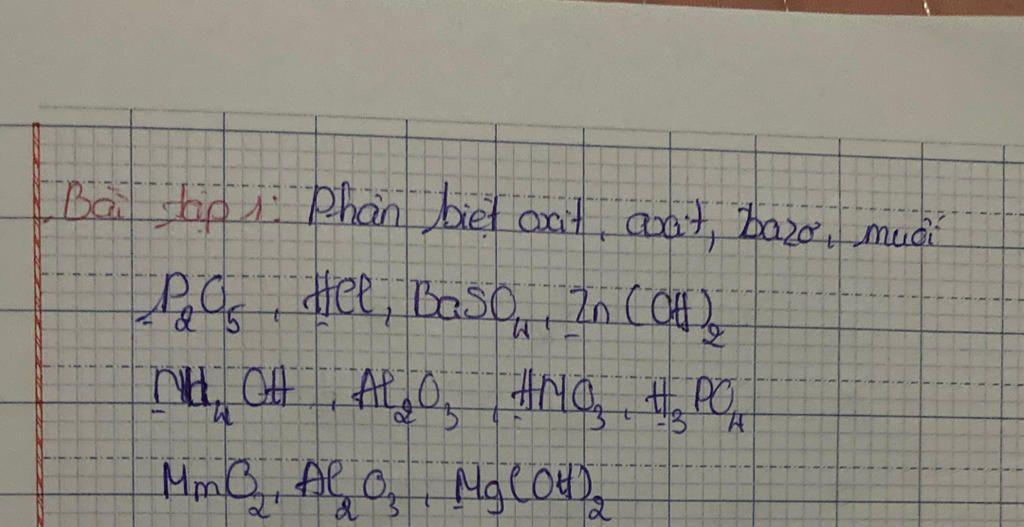 Bài tập 1: Phân biệt oxit, axit, bazơ, muối
P₂O₅, HCl, BaSO₄, Zn(OH)₂
NH₄OH, Al₂O₃, HNO₃, H₃PO₄
MnO₂, Al₂O₃, Mg(OH)₂